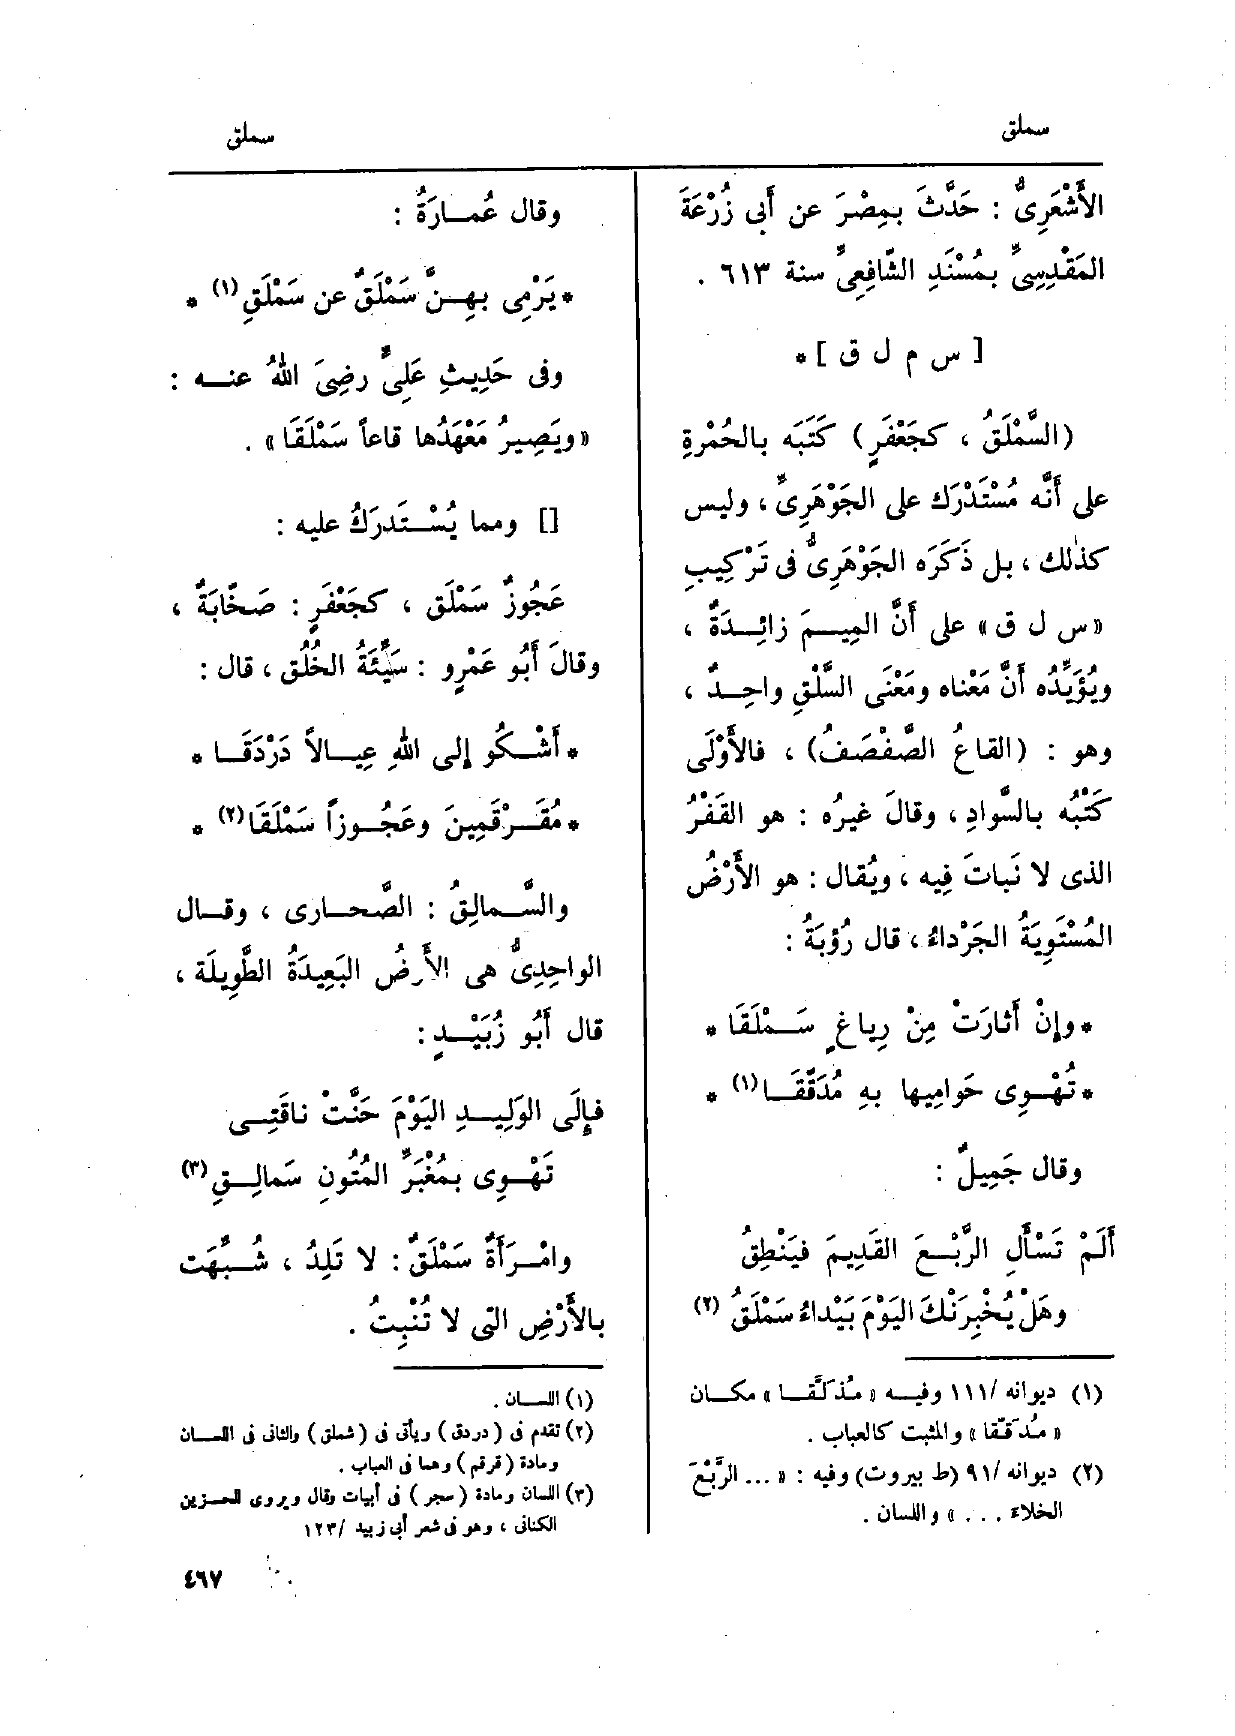 سملق
سملق
الأَشْعَرِىُّ : حَدَّثَ بِمِصْرَ عن أَبى زُرْعَةَ
المَقْدِسِىِّ بمُسْنَدِ الشّافِعِىِّ سنة ٦١٣ .
[ س م ل ق ] *
(السَّمْلَقُ ، كجَعْفَرٍ) كَتَبَه بالحُمْرةِ
على أَنَّه مُسْتَدْرَك على الجَوْهَرِىِّ ، وليس
كذٰلك ، بل ذَكَرَه الجَوْهَرِىُّ فى تَرْكِيبِ
«س ل ق» على أَنَّ المِيمَ زائِدَةٌ ،
ويُؤَيِّدُه أَنَّ مَعْناه ومَعْنَى السَّلْقِ واحِدٌ ،
وهو : (القاعُ الصَّفْصَفُ) ، فالأَوْلَى
كَتْبُه بالسَّوادِ ، وقالَ غيرُه : هو القَفْرُ
الذى لا نَباتَ فِيه ، ويُقال : هو الأَرْضُ
المُسْتَوِيَةُ الجَرْداءُ ، قال رُؤبَةُ :
* وإِنْ أَثارَتْ مِنْ رِياغٍ سَمْلَقَا *
* تُهْوِى حَوامِيها بهِ مُدَقَّقَا(١) *
وقال جَمِيلٌ :
أَلَمْ تَسْأَلِ الرَّبْعَ القَدِيمَ فيَنْطِقُ
وهَلْ يُخْبِرَنْكَ اليَوْمَ بَيْداءُ سَمْلَقُ (٢)
(١) ديوانه /١١١ وفيه « مُذلَقَّا » مكان
« مُدقَّقا » والمثبت كالعباب .
(٢) ديوانه /٩١ (ط بيروت) وفيه : « ... الرَّبْعَ
الخلاءَ . . . » واللسان .
وقال عُمارَةُ :
* يَرْمِى بهِنَّ سَمْلَقٌ عن سَمْلَقِ (١) *
وفى حَدِيثِ عَلِىٍّ رضِىَ اللهُ عنه :
«ويَصِيرُ مَعْهَدُها قاعاً سَمْلَقَا» .
[] ومما يُسْتَدرَكُ عليه :
عَجُوزٌ سَمْلَق ، كجَعْفَرٍ : صَخّابَةٌ ،
وقالَ أَبُو عَمْرٍو : سَيِّئَةُ الخُلُق ، قال :
* أَشْكُو إلى اللهِ عِيالاً دَرْدَقَا *
* مُقَرْقَمِينَ وعَجُوزاً سَمْلَقَا(٢) *
والسَّمالِقُ : الصَّحارى ، وقال
الواحِدِىُّ هى الأَرضُ البَعِيدَةُ الطَّوِيلَة ،
قال أَبُو زُبَيْدٍ :
فإِلَى الوَلِيدِ اليَوْمَ حَنَّتْ ناقَتِى
تَهْوِى بمُغْبَرِّ المُتُونِ سَمالِقِ (٣)
وامْرَأَةٌ سَمْلَقٌ : لا تَلِدُ ، شُبِّهَت
بالأَرْضِ التى لا تُنْبِتُ .
(١) اللسان .
(٢) تقدم فى (دردق) ويأتى فى (شملق) والثانى فى اللسان
ومادة (قرقم) وهما فى العباب .
(٣) اللسان ومادة (سجر) فى أبيات وقال ويروى للحزين
الكنانى ، وهو فى شعر أبى زبيد /١٢٣
٤٦٧